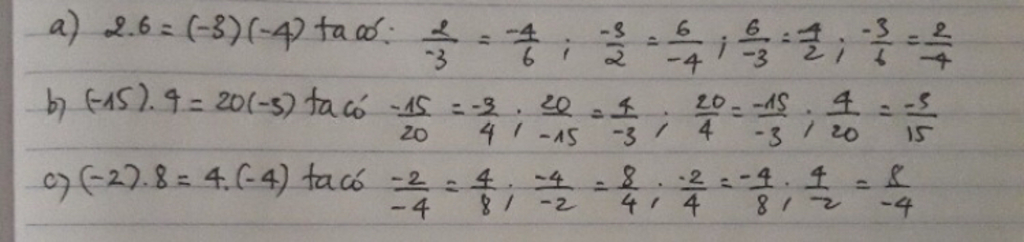 a) 2.6 = (-3)(-4) ta có: 2/-3 = -4/6 ; -3/2 = 6/-4 ; 6/-3 = -4/2 ; -3/6 = 2/-4
b) (-15).4 = 20(-3) ta có -15/20 = -3/4 ; 20/-15 = 4/-3 ; 20/4 = -15/-3 ; 4/20 = -3/15
c) (-2).8 = 4.(-4) ta có -2/-4 = 4/8 ; -4/-2 = 8/4 ; -2/4 = -4/8 ; 4/-2 = 8/-4